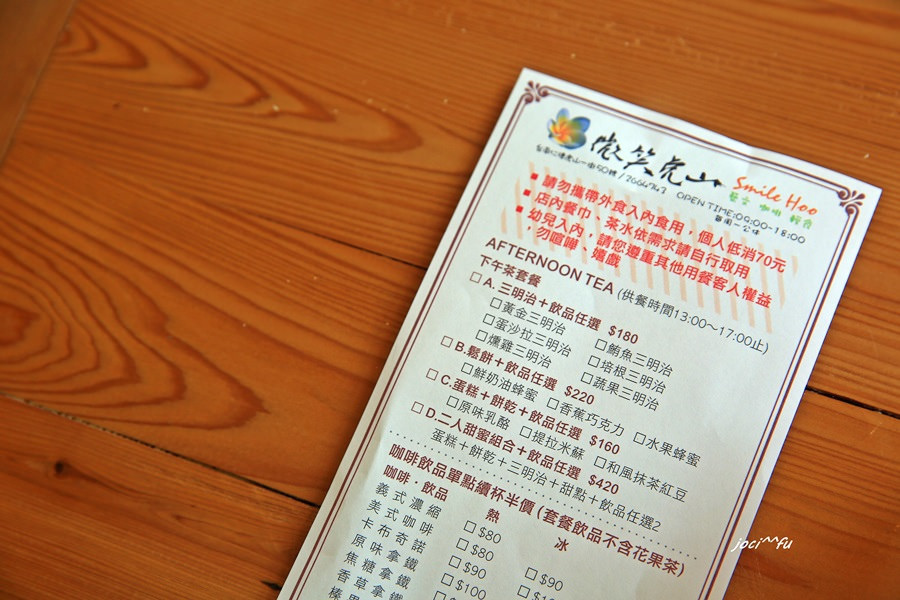 微笑虎山
Smile Hoo
藝文 咖啡 輕食
OPEN TIME:09:00~18:00
週一公休
■ 請勿攜帶外食入內食用，個人低消70元
■ 店內餐巾、茶水依需求請自行取用
■ 幼兒入內，請您遵重其他用餐客人權益
，勿喧嘩、嬉戲
AFTERNOON TEA (供餐時間13:00～17:00止)
下午茶套餐
□ A.三明治＋飲品任選 $180
□黃金三明治 □鮪魚三明治
□蛋沙拉三明治 □培根三明治
□燻雞三明治 □蔬果三明治
□ B.鬆餅＋飲品任選 $220
□鮮奶油蜂蜜 □香蕉巧克力 □水果蜂蜜
□ C.蛋糕＋餅乾＋飲品任選 $160
□原味乳酪 □提拉米蘇 □和風抹茶紅豆
□ D.二人甜蜜組合＋飲品任選 $420
蛋糕＋餅乾＋三明治＋甜點＋飲品任選2
咖啡飲品單點續杯半價 (套餐飲品不含花果茶)
咖啡・飲品 熱 冰
義式濃縮 □$80
美式咖啡 □$80 □$90
卡布奇諾 □$90
原味拿鐵 □$100
焦糖拿鐵
香草拿鐵
joci^^fu